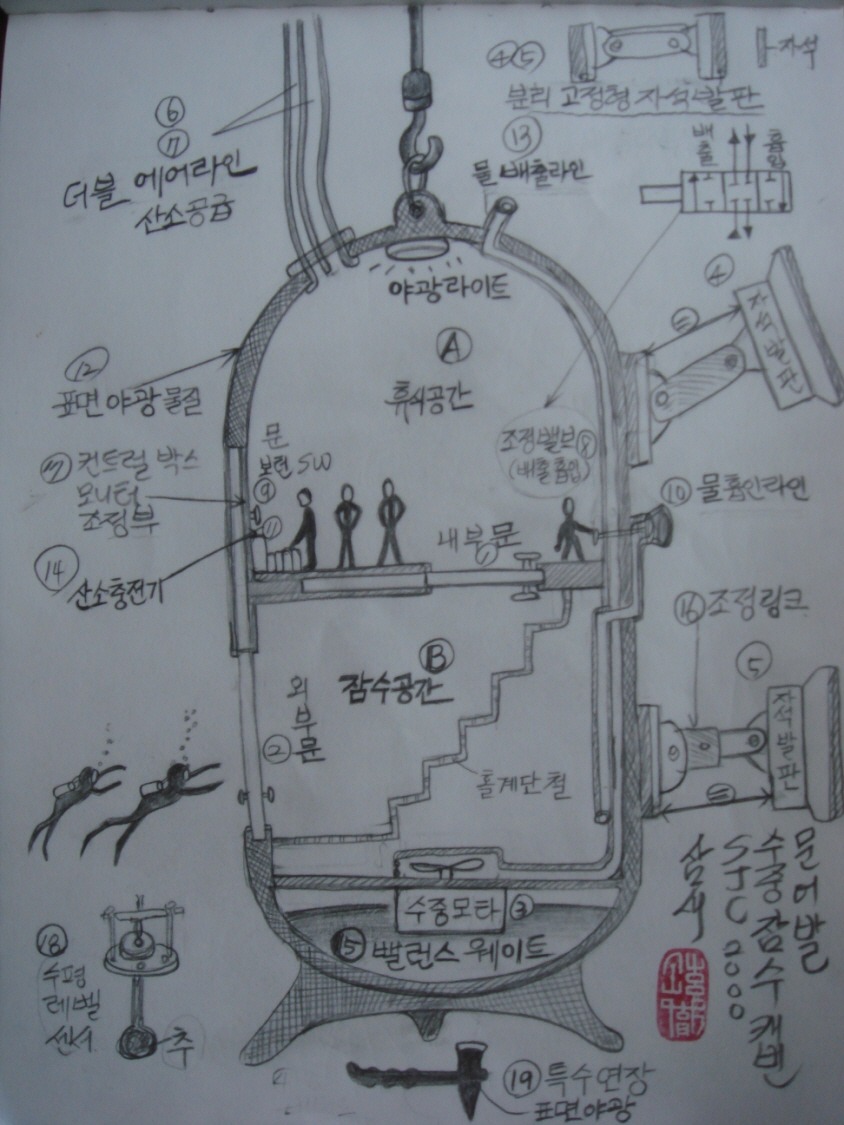 ④⑤
자석
분리 고정형 자석 발판
⑥
⑦
더블 에어라인
산소공급
⑬
물 배출라인
배출
흡입
야광라이트
④
자석발판
Ⓐ
휴식공간
⑫
표면 야광 물질
문
보턴 SW
⑨
⑪
컨트럴 박스
모니터
조정부
조정밸브⑧
(배출흡입)
⑩ 물흡인라인
내부문
①
⑭
산소충전기
⑯조정링크
⑤
자석발판
Ⓑ
잠수공간
외부문
②
홀계단철
수중모타 ③
⑮ 빨런스 웨이트
문어발
수중잠수캐빈
STC 2000
⑱
수평
레벨
센서
추
⑲ 특수연장
표면야광